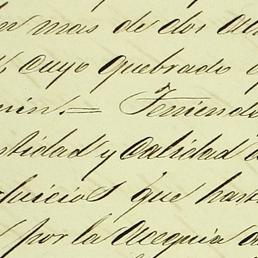 mas de dos
cuyo quebrado
Teniendo
tidad y calidad
juicios que hast
por la Acequia de